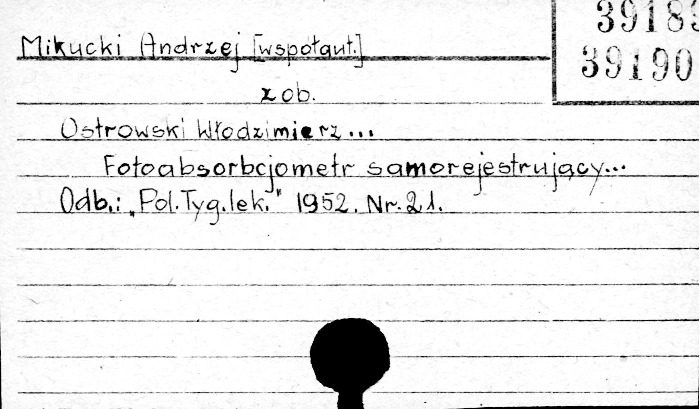 39189
39190
Mikucki Andrzej [współaut.]
zob.
Ostrowski Włodzimierz...
Fotoabsorbcjometr samorejestrujący...
Odb.: „Pol.Tyg.lek." 1952. Nr. 21.